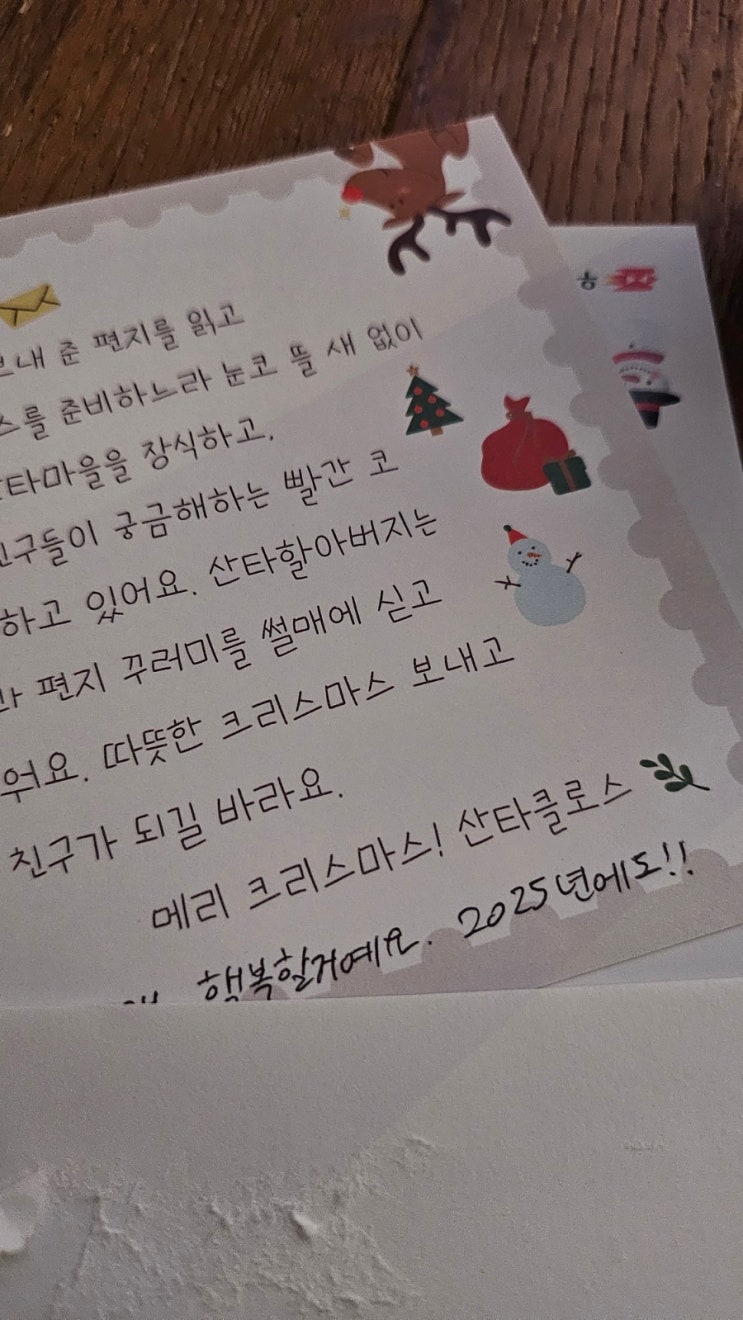 준 편지를 읽고
준비하느라 눈코 뜰 새 없이
장식하고,
궁금해하는 빨간 코
하고 있어요. 산타할아버지는
편지 꾸러미를 썰매에 싣고
따뜻한 크리스마스 보내고
친구가 되길 바라요.
메리 크리스마스! 산타클로스
행복할거예요. 2025년에도!!